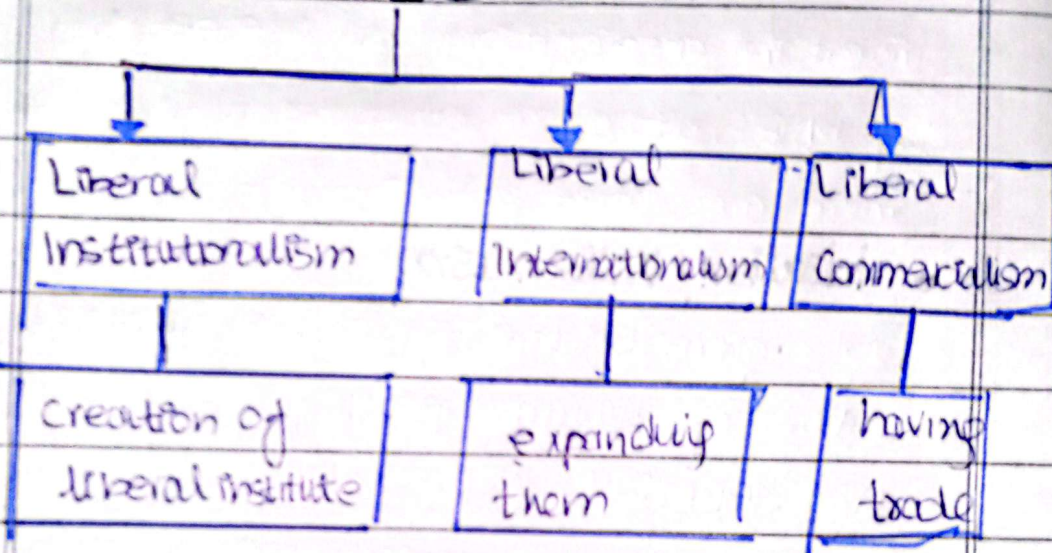 Liberal
Institutionalism
Liberal
Internationalism
Liberal
Commercialism
Creation of
liberal institute
expanding
them
having
trade